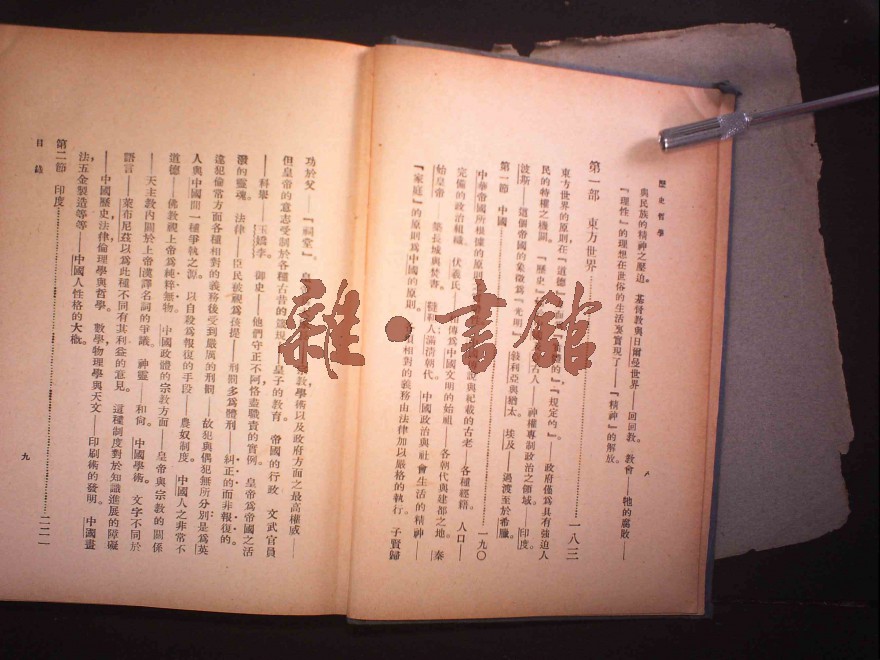 歷史哲學
與民族的精神之壓迫。 基督教與日爾曼世界——回回教。 教會——牠的腐敗——
『理性』的理想在世俗的生活裏實現了——『精神』的解放。
第一部 東方世界……一八三
東方世界的原則在『道德』 的』,『規定的』。——政府僅爲具有強迫人
民的特權之機關。 『歷史』 古人——神權專制政治之領域。 印度
波斯——這個帝國的象徵爲『光明』 敍利亞與猶太。 埃及——過渡至於希臘。
第一節 中國……一九〇
中華帝國所根據的原則 說與紀載的古老——各種經籍。 人口——
完備的政治組織。 伏羲氏 傳爲中國文明的始祖——各朝代與建都之地。 秦
始皇帝——築長城與焚書。 韃靼人;滿清朝代。 中國政治與社會生活的精神——
『家庭』的原則爲中國的原則。 項相對的義務由法律加以嚴格的執行。 子賢歸
功於父——『祠堂』。 皇 教,學術以及政府方面之最高權威——
但皇帝的意志受制於各種古昔的 皇子的教育。 帝國的行政。 文武官員
——科舉——玉嬌李。 御史——他們守正不阿恪盡職責的實例。 皇帝爲帝國之活
潑的靈魂。 法律——臣民被視爲孩提——刑罰多爲體刑——糾正的而非報復的。
違犯倫常方面各種相對的義務後受到嚴厲的刑罰——故犯與偶犯無所分別;是爲英
人與中國間一種爭執之源。 以自殺爲報復的手段——農奴制度。 中國人之非常不
道德——佛教視上帝爲純粹無物。 中國政體的宗教方面——皇帝與宗教的關係
——天主教內關於上帝漢譯名詞的爭議。 神靈——和尙。 中國學術。 文字不同於
語言——萊布尼茲以爲此種不同有其利益的意見。 這種制度對於知識進展的障礙
——中國歷史,法律倫理學與哲學。 數學物理學與天文——印刷術的發明。 中國畫
法,五金製造等等——中國人性格的大槪。
第二節 印度……二二一
目錄
九
雜·書館